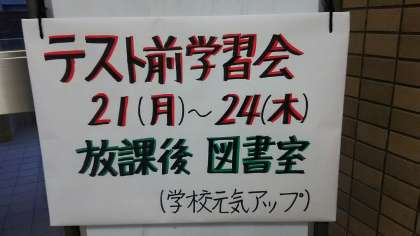 テスト前学習会
21(月)～24(木)
放課後 図書室
(学校元気アップ)